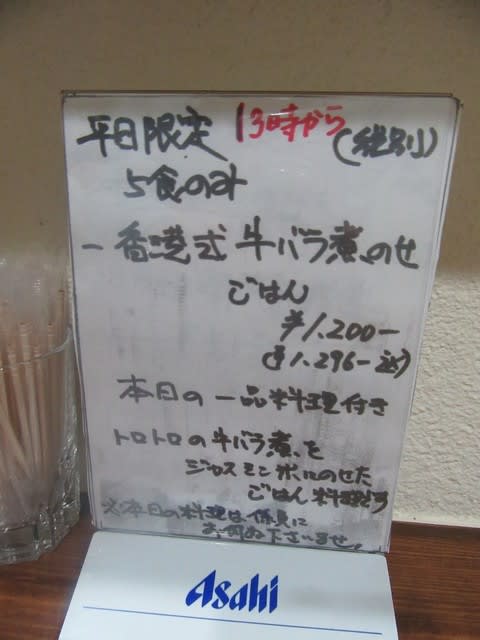 平日限定 13時から (税別)
5食のみ
一香港式牛バラ煮のせ
ごはん
¥1,200-
(¥1,296-込)
本日の一品料理付き
トロトロの牛バラ煮を
ジャスミン米にのせた
ごはん料理です
※本日の料理は係員に
お尋ね下さいませ。
Asahi